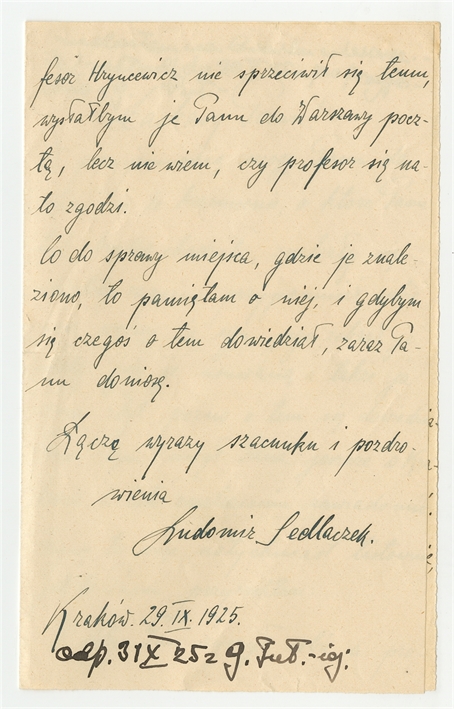 fesor Hryncewicz nie sprzeciwił się temu,
wysłałbym je Panu do Warszawy pocz-
tą, lecz nie wiem, czy profesor się na-
to zgodzi.
Co do sprawy miejsca, gdzie je znale-
ziono, to pamiętam o niej, i gdybym
się czegoś o tem dowiedział, zaraz Pa-
nu doniosę.
Łączę wyrazy szacunku i pozdro-
wienia
Ludomir Sedlaczek.
Kraków. 29.IX.1925.
odp. 31 X 25 z